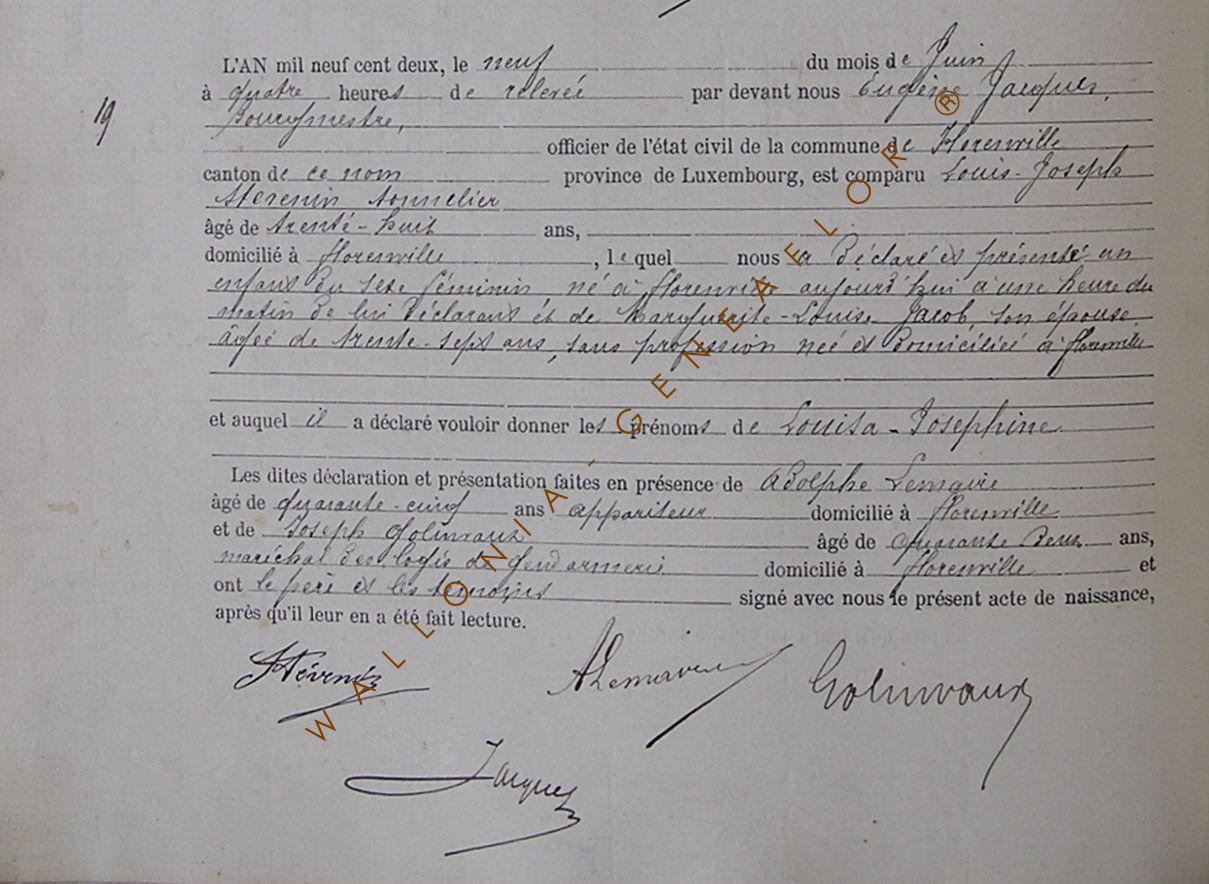 L'AN mil neuf cent deux, le neuf du mois de Juin
19
à quatre heures de relevée par devant nous Eugène Jacques,
bourgmestre,
officier de l'état civil de la commune de Florenville
canton de ce nom province de Luxembourg, est comparu Louis-Joseph
Stevenin tonnelier
âgé de trente-huit ans,
domicilié à florenville, lequel nous a déclaré et présenté un
enfant du sexe féminin, né à florenville aujourd'hui à une heure du
matin de lui déclarant et de Marguerite-Louise Jacob, son épouse
âgée de trente-sept ans, sans profession née et domiciliée à florenville
et auquel il a déclaré vouloir donner les prénoms de Louisa-Josephine
Les dites déclaration et présentation faites en présence de Adolphe Lemaire
âgé de quarante-cinq ans appariteur domicilié à florenville
et de Joseph Golinvaux âgé de quarante deux ans,
maréchal des logis de gendarmerie domicilié à florenville et
ont le père et les témoins signé avec nous le présent acte de naissance,
après qu'il leur en a été fait lecture.
Stévenin ALemaire Golinvaux
Jacques
WALLONIA-GENEAELOR ®